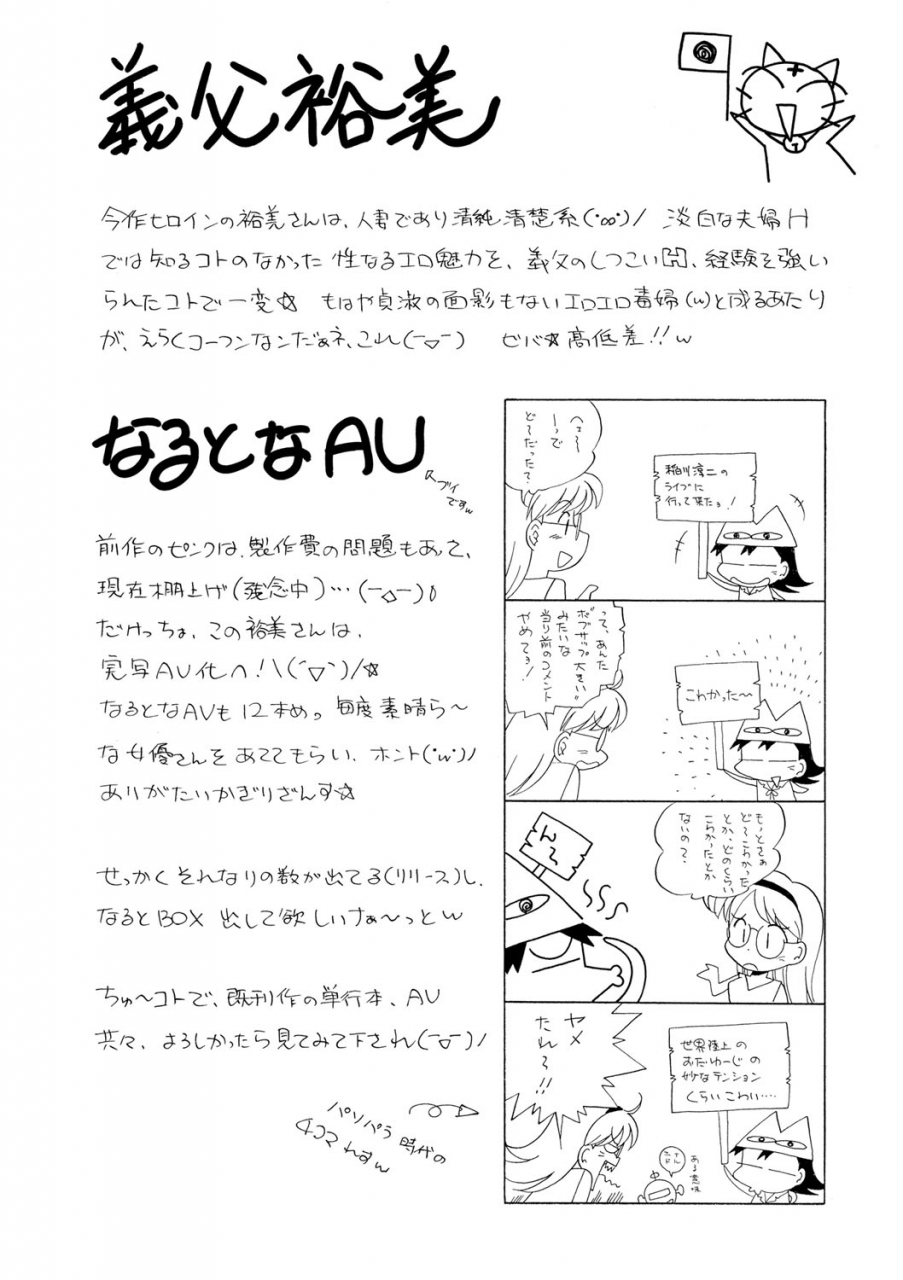 義父裕美
今作ヒロインの裕美さんは、人妻であり清純清楚系(･∞･)/ 淡白な夫婦H
では知るコトのなかった 性なるエロ魅力を、義父のしつこい
経験を強い
られたコトで一変☆ もはや貞淑の面影もないエロエロ毒婦(w)と成るあたり
が、えらくコーフンなンだぁネ、これ(ー▽ー) ビバ☆高低差!!w
なるとなAU
スブイ
ですw
前作のピンクは、製作費の問題もあって、
現在棚上げ(残念中)…(ー△ー)
だけっちょ、この裕美さんは、
実写AV化へ!\(´▽`)/☆
なるとなAVも12本め。毎度素晴ら〜
な女優さんをあててもらい、ホント(･w･)/
ありがたいかぎりざんす☆
せっかくそれなりの数が出てる(リリース)し、
なるとBOX 出して欲しいナぁ〜っとw
ちゅ〜コトで、既刊作の単行本、AV
共々、よろしかったら見てみて下され(ー▽ー)/
パソパラ時代の
4コマ
れすw
稲川淳二の
ライブに
行って来たョ!
へェ〜
ーっで
ど〜だった?
こわかった〜
って、あんた
ボブサップ大きい!!
みたいな
当り前のコメント
やめてョ!
もっとさぁ
ど〜こわかった
とか、どのくらい
こわかったとか
ないの?
ん〜
世界陸上の
おだゆーじの
妙なテンション
くらいこわい…
ヤメ
たれろ!!
ある意味